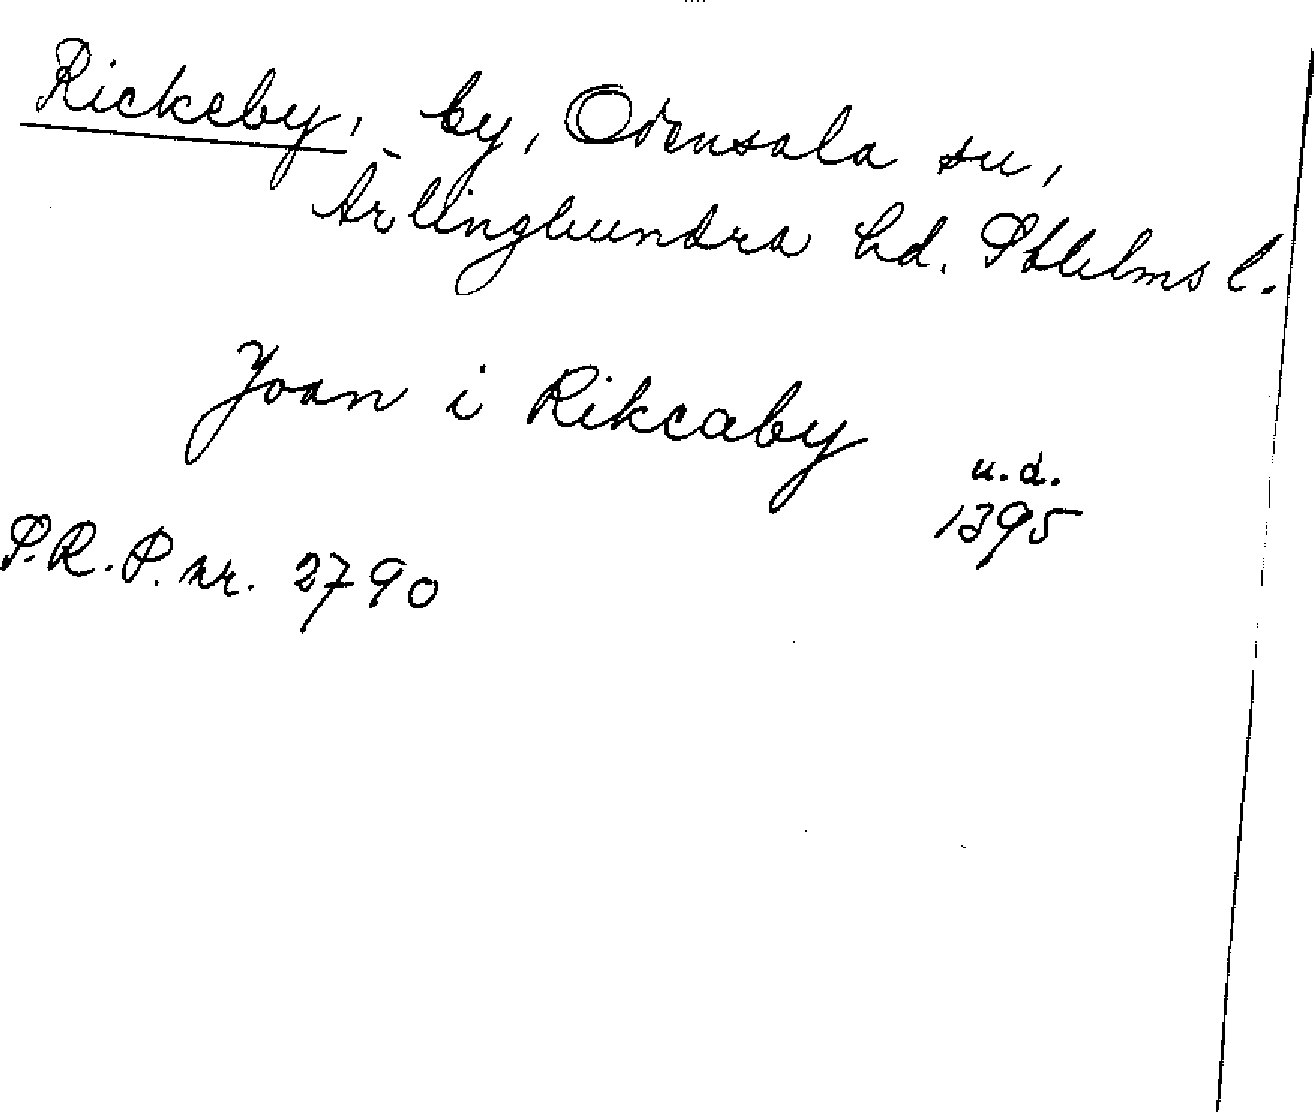 Rickeby, by, Odensala sn,
Ärlinghundra hd. Sthlms l.
Joan i Rikcaby
u.d.
1395
P.R.P. nr. 2790